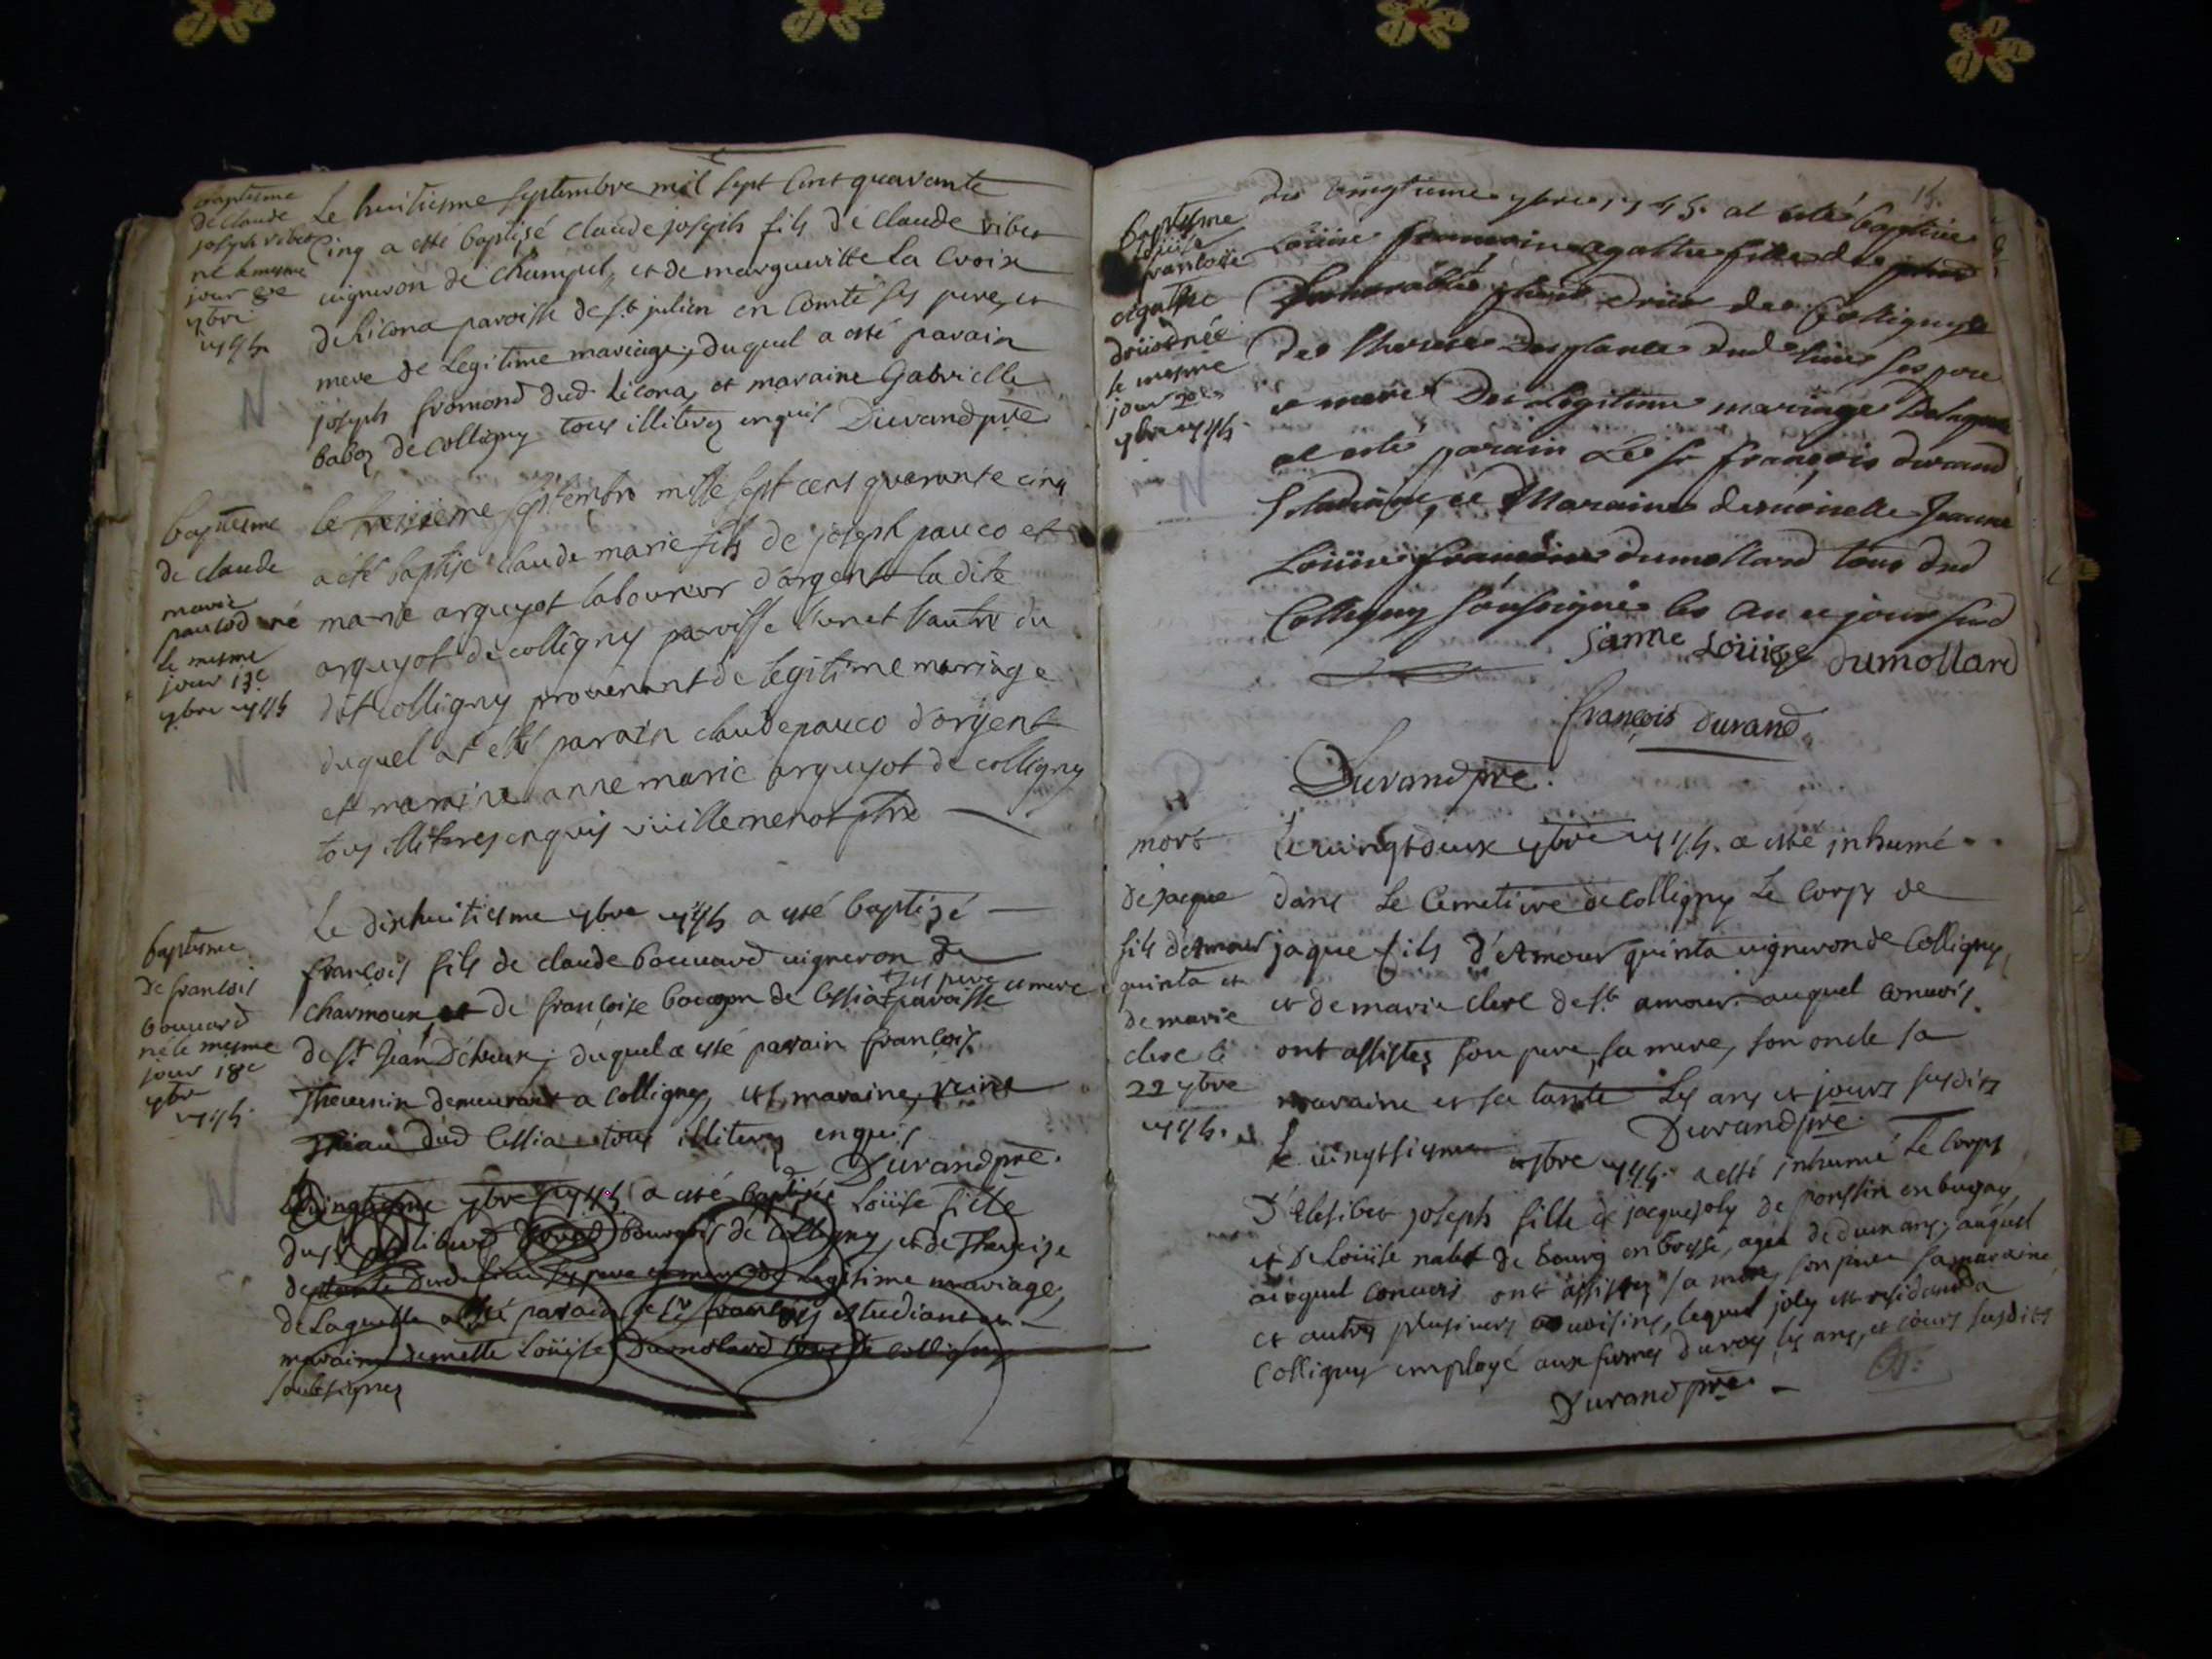 baptesme
de claude
joseph viber
né le mesme
jour 8e
7bre
1745
Le huitiesme septembre mil sept cent quarante
cinq a esté baptisé claude joseph fils de claude viber
vigneron de et de margueritte La croix
de Licona paroisse de st julien en Comté ses pere, et
mere de Legitime mariage, duquel a esté parain
joseph fromond dud. Licona, et maraine Gabrielle
baboz de colligny tous illiterez enquis Durand pre
baptesme
de claude
marie
pauco né
le mesme
jour 13e
7bre 1745
le treisieme septembre mille sept cent quarante cinq
a été baptisé claude marie fils de joseph pauco et
marie arguyot laboureur d'argent la dite
arguyot de colligny paroisse l'un et l'autre du
dit colligny provenant de legitime mariage
duquel at esté parain claude pauco d'argent
et maraine anne marie arguyot de colligny
tous illiteres enquis vuillemenot ptre
baptesme
de francois
bouvard
né le mesme
jour 18e
7bre
1745
Le dixhuitiesme 7bre 1745 a esté baptizé
françois fils de claude bouvard vigneron de
ses pere et mere
charmoux et de françoise de Cessia paroisse
de st Jean D'étreux, duquel a esté parain françois
Thevenin demeurant a colligny, et maraine, reine
dud Cessia tous illiterez enquis
Durand pre.
Le vingtiesme 7bre 1745 a esté baptisée Loüise fille
du sr bourgeois de colligny, et de Thereize
deplante dud. lieu ses pere et mere de Legitime mariage,
de Laquelle a esté parain le sr françois estudiant et
maraine demelle Loüise Dumolard tous de colligny
soubsignez
15.
baptesme
Loüise
francoise
agathe
drüod née
le mesme
jour 20e
7bre 1745
du vingtieme 7bre 1745. at esté baptisée
Loüise francoise agathe fille de
drüod de Colligny &
de therese Desplante dud lieu ses pere
et mere De Legitime mariage De laquelle
at esté parain Le sr françois durand
et Maraine demoiselle Jeanne
Loüise francoise dumollard tous dud
Colligny soussignés les an et jour susd
janne Loüise dumollard
françois durand
Durand pre.
mort
de jacque
fils d'Amour
quinta et
de marie
clerc le
22 7bre
1745.
Le vingtdeux 7bre 1745. a esté inhumé
dans Le Cemetiere de colligny Le corps de
jaque fils d'Amour quinta vigneron de Colligny,
et de marie clerc de st. amour. auquel convois
ont assistez son pere, sa mere, son oncle sa
maraine et sa tante Les ans et jours susdits
Durand pre.
Le vingtsixiesme 7bre 1745. a esté inhumé Le corps
D'Elesibet joseph fille de jacque joly de ponssin en bugey,
et De Loüise nabet de bourg en bresse, agée de deux ans, auquel
convois ont assistez sa mere, son pere sa maraine
et autres plusieurs voisins, lequel joly est residant a
Colligny employé aux fermes du roy, les ans, et jours susdits
Durand pre.